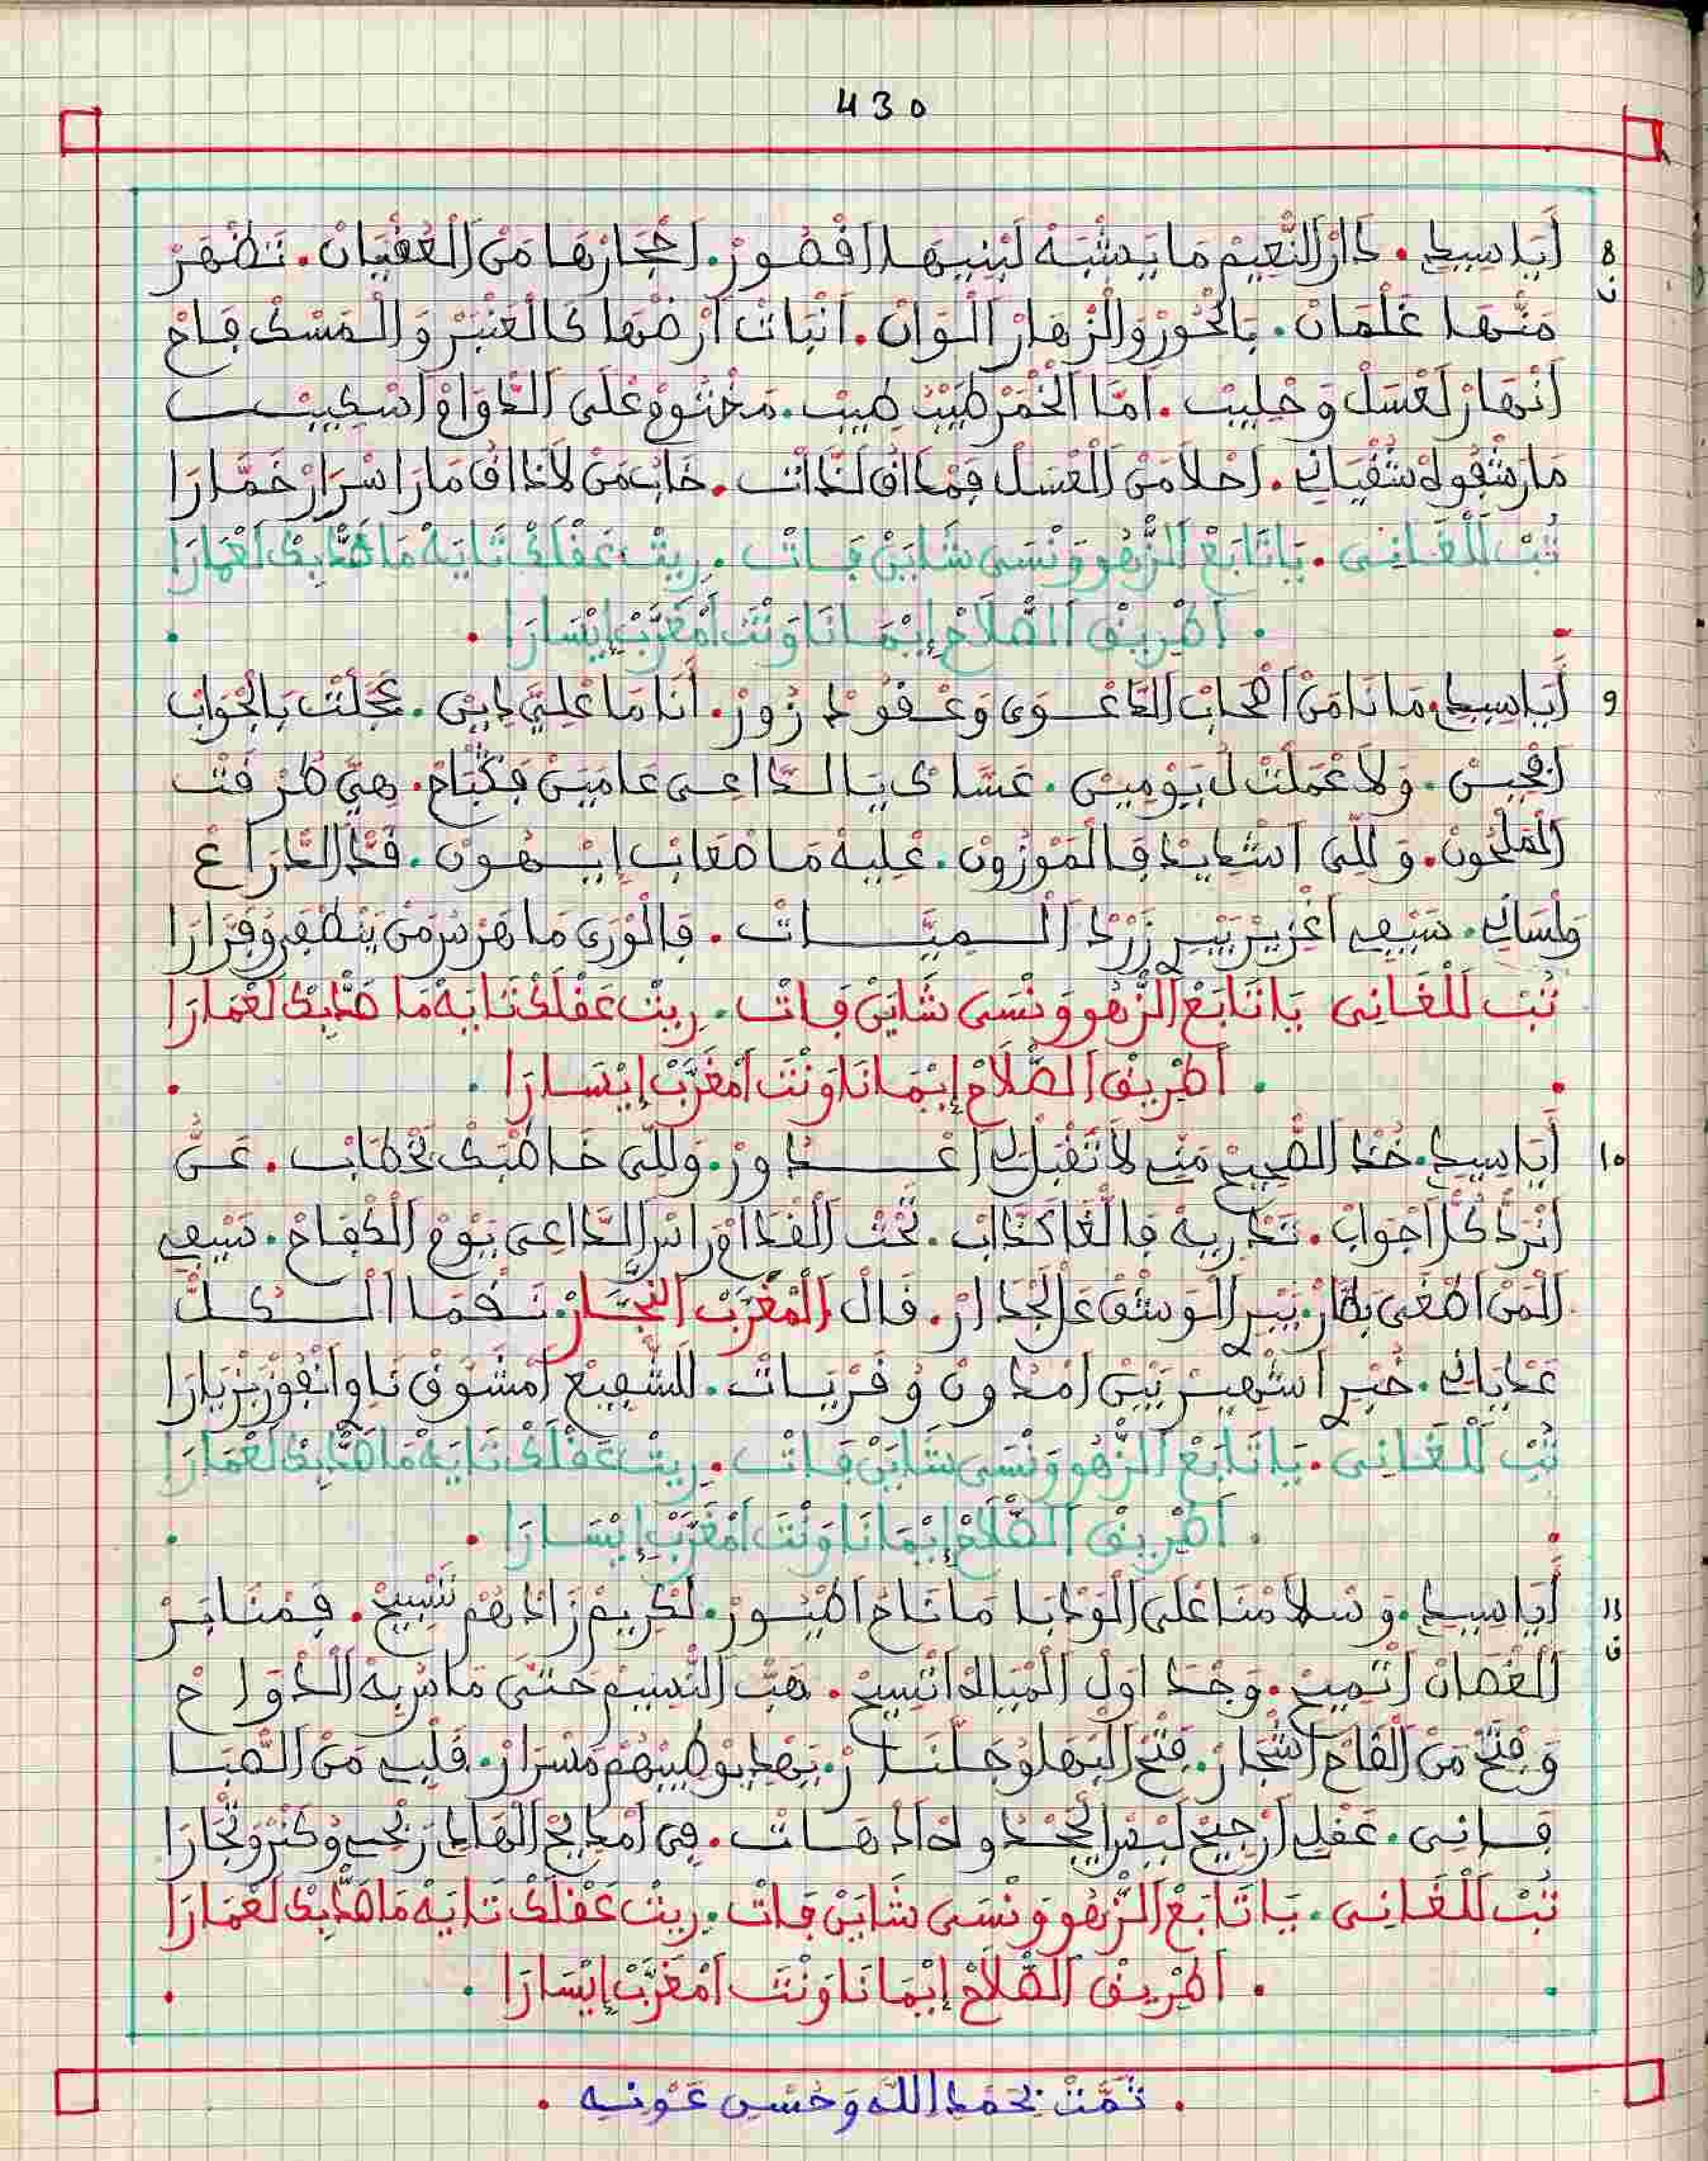 430
8 أَيَا سِيدِي . دَارْ النّْعِيمْ مَا يَشْبَهْ لَبْنِيهَا اقْصُورْ . احْجَارْهَا مَنْ الْعُقْيَانْ . تَظْهَرْ
ن مَنْهَا غَلْمَانْ . بَالْحُورْ وَالْزْهَارْ الْوَانْ . انْبَاتْ ارْضْهَا كَالْعَنْبَرْ وَالْمَسْكْ فَاحْ
انْهَارْ لَعْسَلْ وَحْلِيبْ . امَّا الْخْمَرْ طَيَّبْ طِيبْ . مَخْتُومْ عْلَى الدّْوَامْ اسْكِيبْ
مَا رَشْفُوهْ شَفْيَانِي . احْلَا مَنْ الْعْسَلْ فَمْدَاقْ لَدَّاتْ . خَابْ مَنْ لَا دَاقْ مَارَا اسْرَارْ خَمَّارَا
تُبْ لَلْغَانِي . يَا تَابَعْ الزّْهُو وَنْسَى شَايَنْ فَاتْ . رِيتْ عَقْلَكْ تَايَهْ مَا هَدَّبْكْ لَعْمَارَا
. اطْرِيقْ الصّْلَاحْ إيْمَانَا وَنْتَ امْغَرَّبْ إيْسَارَا .
9 أَيَا سِيدِي . مَانَا مَنْ اصْحَابْ الدَّعْوَى وَعْقُودْ زُورْ . أَنَا مَا عْلِيَّ دِينْ . عَجَّلْتْ بَالْجْوَابْ
افْحِينْ . وَلَا عْمَلْتْ لُ يُومِينْ . عَسَّاكْ يَا الدَّاعِي عَامَيْنْ فَكْبَاحْ . هِيَّ طُرْقَتْ
الْمَلْحُونْ . وَلِلِّي اشْدَايَدْ فَالْمَوْزُونْ . عْلِيهْ مَا صْعَابْ إيْهُونْ . قَدّْ الدّْرَاعْ
وَلْسَانِي . سَيْفِي اغْزِيرْ يَبْرِي زَرْدْ الْمِيَّاتْ . فَالْوْرَى مَا هَرْسْ مَنْ يَنْطْفَرْ وُفَرَّارَا
تُبْ لَلْغَانِي يَا تَابَعْ الزّْهُو وَنْسَى شَايَنْ فَاتْ . رِيتْ عَقْلَكْ تَايَهْ مَا هَدَّبْكْ لَعْمَارَا
. اطْرِيقْ الصّْلَاحْ إيْمَانَا وَنْتَ امْغَرَّبْ إيْسَارَا .
10 أَيَا سِيدِي . خُدْ الصّْحِيحْ مَنِّي لَا تَقْبَلْ لِي اعْدُورْ . وَلِلِّي خَاطْبَكْ بَخْطَابْ . عَنُّ
انْرَدّْ كُلّْ اجْوَابْ . تَدْرِيهْ فَالْلْغَا كَدَّابْ . تَحْتْ الْقْدَامْ رَاسْ الدَّاعِي يَوْمْ الْكْفَاحْ . سَيْفِي
الْمَنْ اطْغَى بَطَّارْ . يَبْرِي الْوَشْقْ عَلْ الْجْدَارْ . قَالْ الْمْغَرَّبْ النَّجَّارْ . نَقْمَا الْكُلّْ
عَدْيَانِي . خُبْرِي اشْهِيرْ بَيْنْ امْدُونْ وُقَرْيَاتْ . لَلشّْفِيعْ امْشَوَّقْ نَاوِي انْفُوزْ بَزْيَارَا
تُبْ لَلْغَانِي . يَا تَابَعْ الزّْهُو وَنْسَى شَايَنْ فَاتْ . رِيتْ عَقْلَكْ تَايَهْ مَا هَدَّبْكْ لَعْمَارَا
. اطْرِيقْ الصّْلَاحْ إيْمَانَا وَنْتَ امْغَرَّبْ إيْسَارَا .
11 أَيَا سِيدِي . وَسْلَامْنَا عْلَى الْوُدْبَا مَا نَاحْ اطْيُورْ . لَكْرِيمْ زَادْهُمْ تَسْبِيحْ . فَمْنَابَرْ
ق الْغْصَانْ اتْمِيحْ . وَجْدَاوَلْ الْمْيَاهْ اتْسِيحْ . هَبّْ النّْسِيمْ حَتَّى مَاسْ بِهْ الدّْوَاحْ
وَفْتَحْ مَنْ الْقَاحْ اشْجَارْ . فَتْحْ الْبْهَلْ وُجَلَّنَارْ . يَهْدِيوْ طِيبْهُمْ مَسْرَارْ . قَلْبِي مَنْ الصّْبَا
فَانِي . عَقْلِي ارْجِيحْ لَبْصَرْ الْجْحْدُو لَهْ ادْهَاتْ . فِي امْدَايَحْ الْهَادِي رَبْحِي وُكَنْزْ وَتْجَارَا
تُبْ لَلْغَانِي . يَا تَابَعْ الزّْهُو وَنْسَى شَايَنْ فَاتْ . رِيتْ عَقْلَكْ تَايَهْ مَا هَدَّبْكْ لَعْمَارَا
. اطْرِيقْ الصّْلَاحْ إيْمَانَا وَنْتَ امْغَرَّبْ إيْسَارَا .
. تَمَّتْ بِحَمْدِ اللَّه وَحُسْنِ عَوْنِهِ .